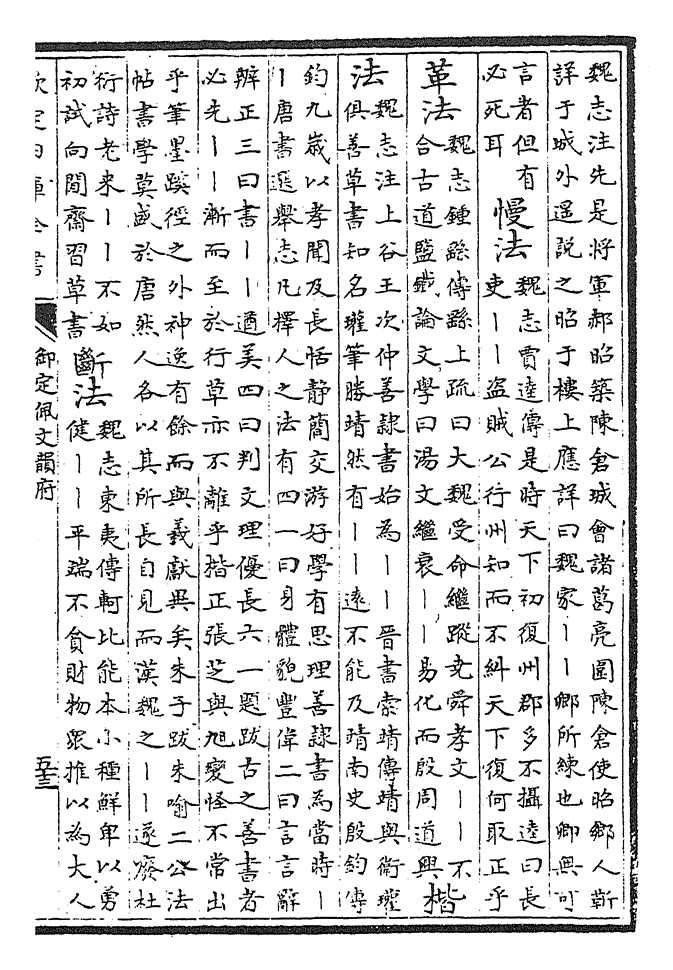 魏志注先是将軍郝昭築陳倉城會諸葛亮圍陳倉使昭鄉人靳
詳于城外遥說之昭于樓上應詳曰魏家丨丨卿所練也卿無可
言者但有
必死耳
慢法
魏志賈逵傳是時天下初復州郡多不攝逵曰長
吏丨丨盜賊公行州知而不糾天下復何取正乎
革法
魏志鍾繇傳繇上疏曰大魏受命繼蹤尭舜孝文丨丨不
合古道鹽鐵論文學曰湯文繼衰丨丨易化而殷周道興
楷
法
魏志注上谷王次仲善隸書始為丨丨晉書索靖傳靖與衛瓘
俱善草書知名瓘筆勝靖然有丨丨逺不能及靖南史殷鈞傳
鈞九歲以孝聞及長恬静簡交游好學有思理善隸書為當時丨
丨唐書選舉志凡擇人之法有四一曰身體貌豐偉二曰言言辭
辨正三曰書丨丨遒美四曰判文理優長六一題跋古之善書者
必先丨丨漸而至於行草亦不離乎楷正張芝與旭變怪不常出
乎筆墨蹊徑之外神逸有餘而與羲獻異矣朱子跋朱喻二公法
帖書學莫盛於唐然人各以其所長自見而漢魏之丨丨遂廢杜
衍詩老来丨丨不如
初試向閒齋習草書
斷法
魏志東夷傳軻比能本小種鮮卑以勇
健丨丨平瑞不貪財物衆推以為大人
欽定四庫全書
御定佩文韻府
五三